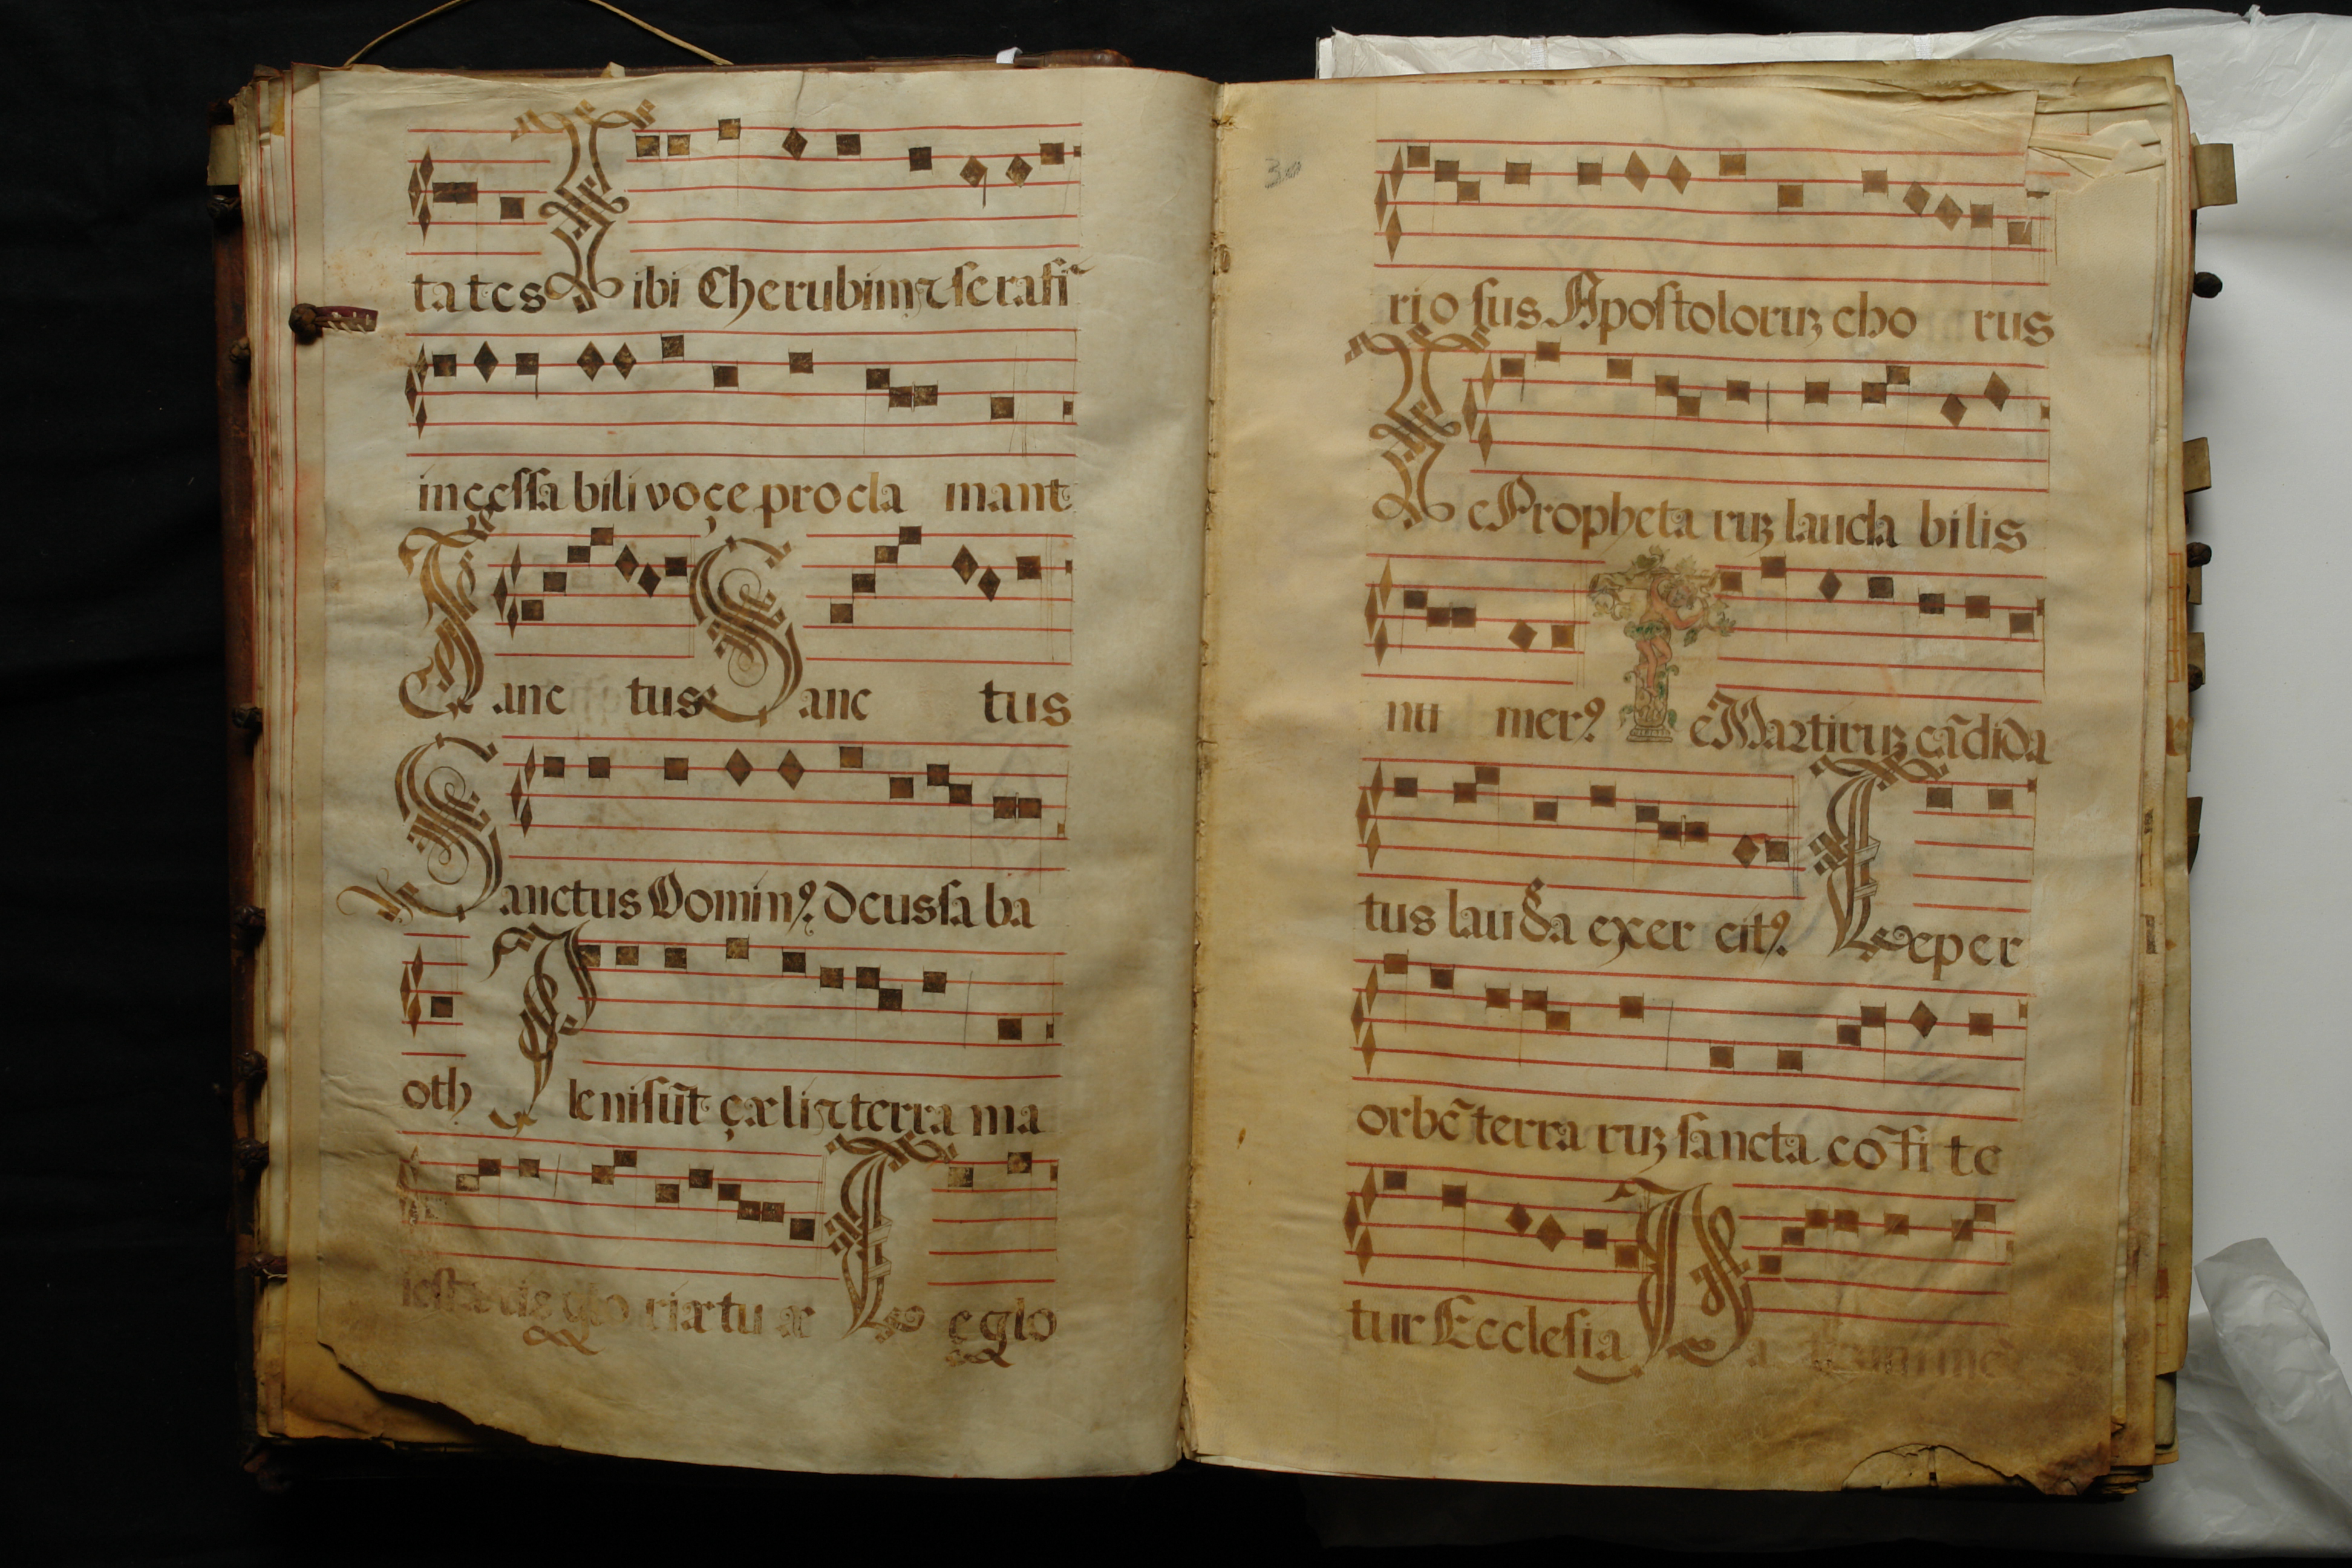 tates Tibi Cherubim ⁊ serafĩ
incessa bili voçe procla mant
Sanc tus Sanc tus
Sanctus Dominꝰ deus sa ba
oth Pleni sũt çæli ⁊ terra ma
iestatis glo riæ tu æ Te glo
30
rio sus Apostoloruꝫ cho rus
Te Propheta ruꝫ lauda bilis
nu merꝰ Te Martiruꝫ cãdida
tus lauda exer citꝰ Te per
orbẽ terra ruꝫ sancta cõfi te
tur Ecclesia Pa